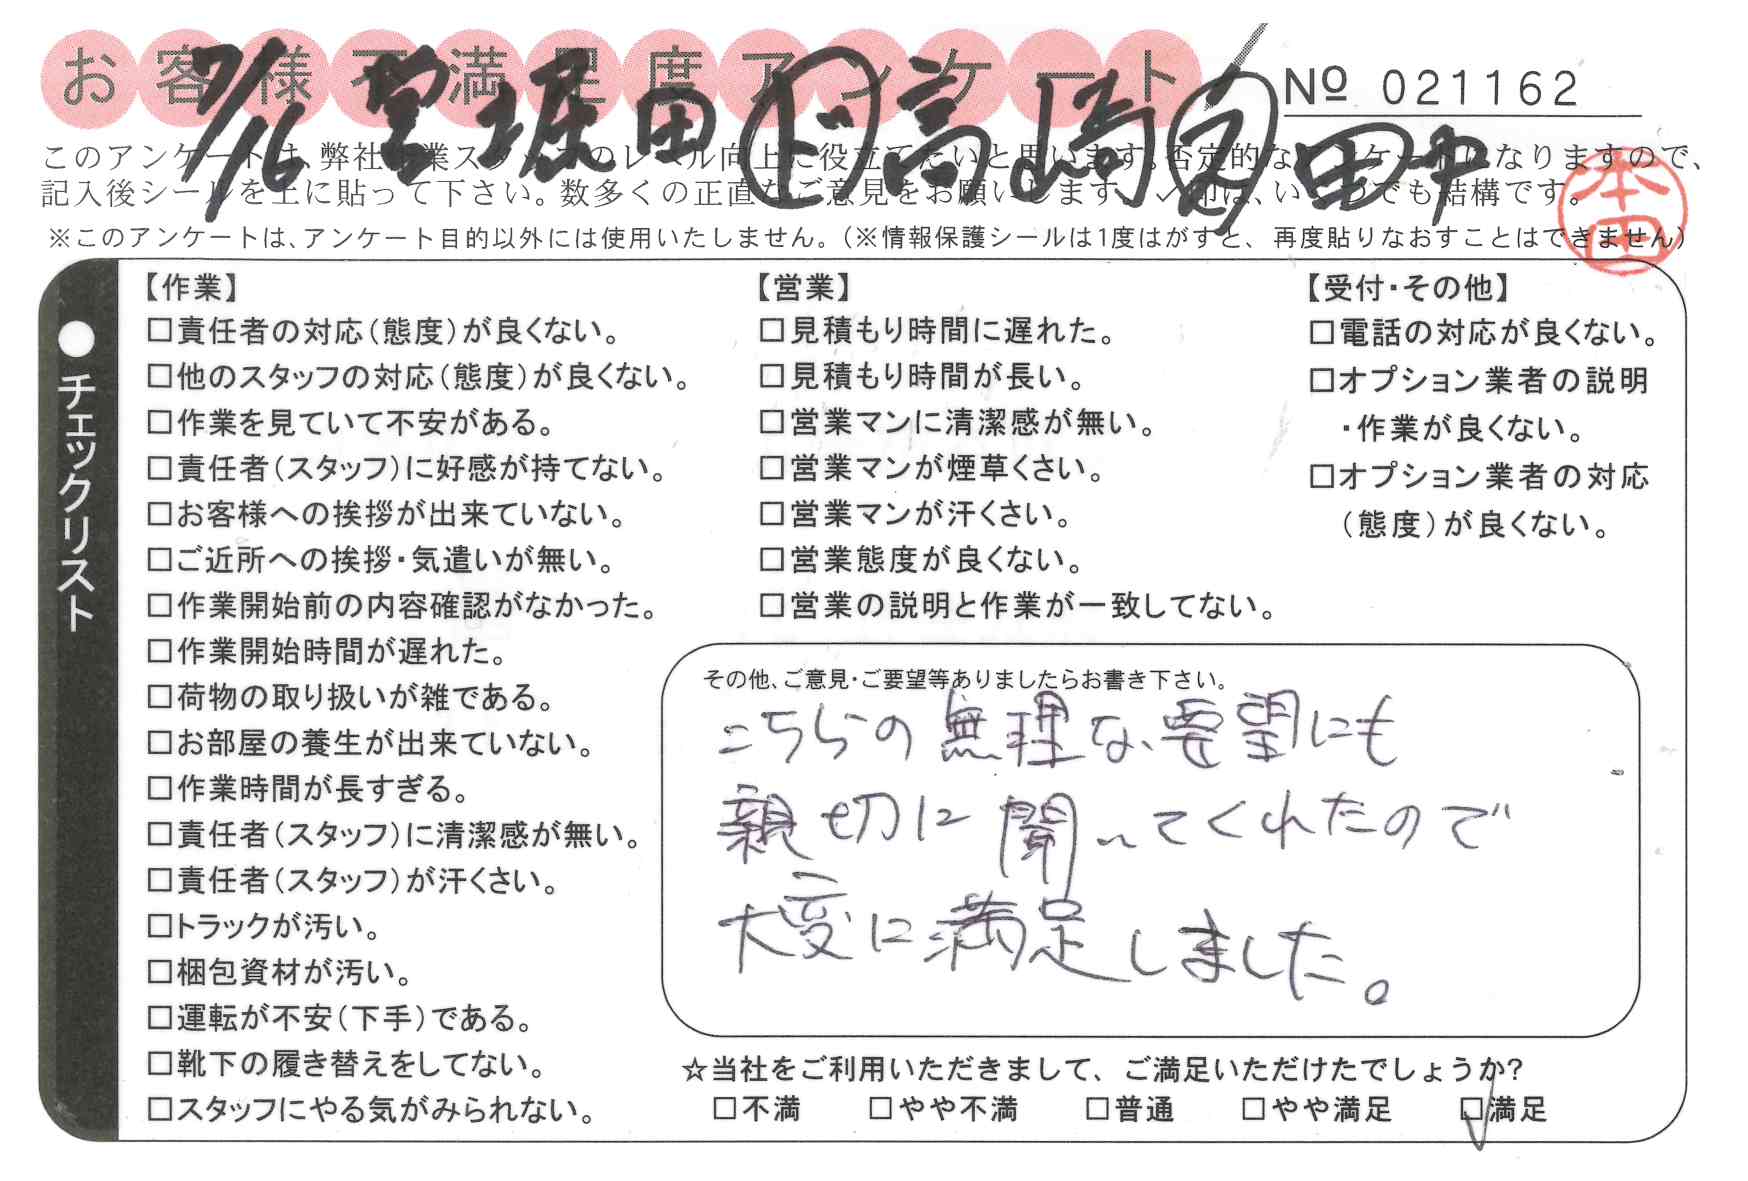 お客様不満足度アンケート
7/16 営 堀田 作 高崎 田中
№ 021162
このアンケートは、弊社作業スタッフのレベル向上に役立てたいと思います。否定的なアンケートになりますので、
記入後シールを上に貼って下さい。数多くの正直なご意見をお願いします。✓印は、いくつでも結構です。
※このアンケートは、アンケート目的以外には使用いたしません。(※情報保護シールは1度はがすと、再度貼りなおすことはできません)
本田
●チェックリスト
【作業】
□責任者の対応(態度)が良くない。
□他のスタッフの対応(態度)が良くない。
□作業を見ていて不安がある。
□責任者(スタッフ)に好感が持てない。
□お客様への挨拶が出来ていない。
□ご近所への挨拶・気遣いが無い。
□作業開始前の内容確認がなかった。
□作業開始時間が遅れた。
□荷物の取り扱いが雑である。
□お部屋の養生が出来ていない。
□作業時間が長すぎる。
□責任者(スタッフ)に清潔感が無い。
□責任者(スタッフ)が汗くさい。
□トラックが汚い。
□梱包資材が汚い。
□運転が不安(下手)である。
□靴下の履き替えをしてない。
□スタッフにやる気がみられない。
【営業】
□見積もり時間に遅れた。
□見積もり時間が長い。
□営業マンに清潔感が無い。
□営業マンが煙草くさい。
□営業マンが汗くさい。
□営業態度が良くない。
□営業の説明と作業が一致してない。
【受付・その他】
□電話の対応が良くない。
□オプション業者の説明
・作業が良くない。
□オプション業者の対応
(態度)が良くない。
その他、ご意見・ご要望等ありましたらお書き下さい。
こちらの無理な要望にも
親切に聞いてくれたので
大変に満足しました。
☆当社をご利用いただきまして、ご満足いただけたでしょうか?
□不満 □やや不満 □普通 □やや満足 ☑満足